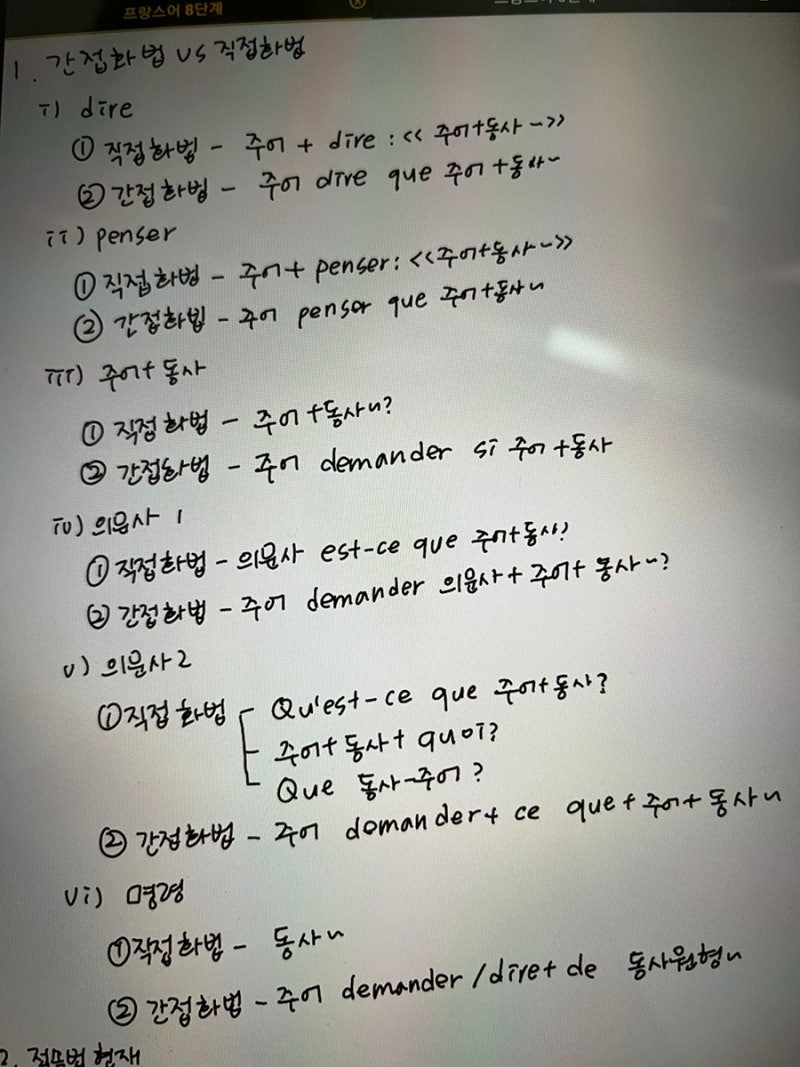 프랑스어 8단계
1. 간접화법 vs 직접화법
i) dire
① 직접화법 - 주어 + dire : << 주어+동사~>>
② 간접화법 - 주어 dire que 주어+동사~
ii) penser
① 직접화법 - 주어+ penser: <<주어+동사~>>
② 간접화법 - 주어 penser que 주어+동사~
iii) 주어+동사
① 직접화법 - 주어+동사~?
② 간접화법 - 주어 demander si 주어+동사
iv) 의문사 1
① 직접화법 - 의문사 est-ce que 주어+동사?
② 간접화법 - 주어 demander 의문사+주어+동사~?
v) 의문사2
① 직접화법 - Qu'est-ce que 주어+동사?
- 주어+동사+quoi?
- Que 동사-주어?
② 간접화법 - 주어 demander+ ce que+주어+동사~
vi) 명령
① 직접화법 - 동사~
② 간접화법 - 주어 demander/dire+ de 동사원형~
2. 접속법 현재